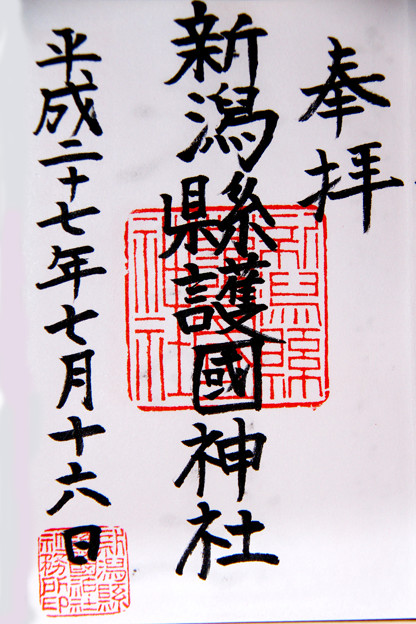 奉拝
新潟縣護國神社
平成二十七年七月十六日
新潟縣
護國神社
新潟縣
護國神社
社務所印